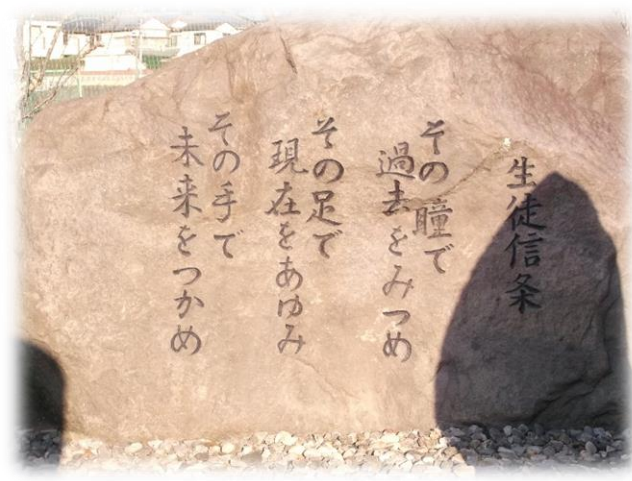 生徒信条
その瞳で
過去をみつめ
その足で
現在をあゆみ
その手で
未来をつかめ